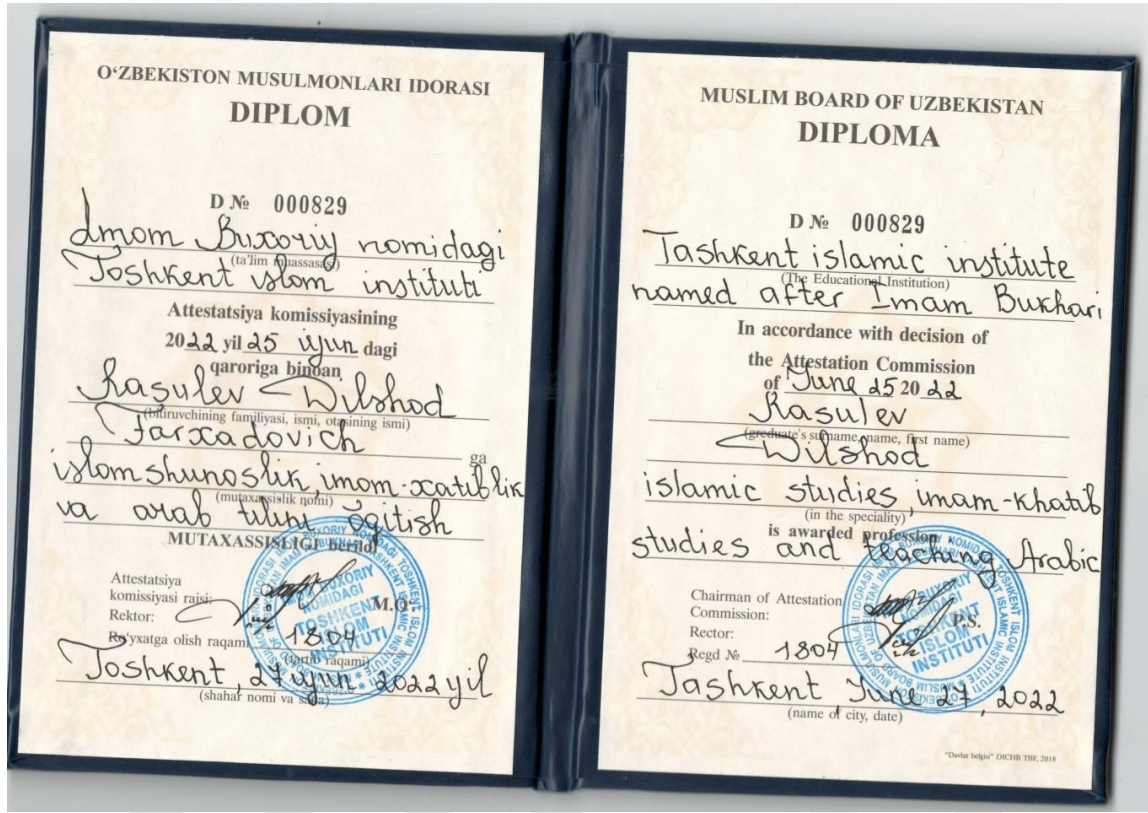 O‘ZBEKISTON MUSULMONLARI IDORASI
DIPLOM
D № 000829
Imom Buxoriy nomidagi
(ta'lim muassasasi)
Toshkent islom instituti
Attestatsiya komissiyasining
2022 yil 25 iyun dagi
qaroriga binoan
Rasulev Dilshod
(bitiruvchining familiyasi, ismi, otasining ismi)
Farxadovich ga
islomshunoslik, imom-xatiblik
(mutaxassislik nomi)
va arab tilini o'gitish
MUTAXASSISLIGI berildi
Attestatsiya
komissiyasi raisi:
Rektor:
M.O‘.
Ro‘yxatga olish raqami 1804
(tartib raqami)
Toshkent, 27 iyun 2022 yil
(shahar nomi va sana)
BUXORIY
NOMIDAGI
TOSHKENT
ISLOM
INSTITUTI
MUSLIM BOARD OF UZBEKISTAN
DIPLOMA
D № 000829
Tashkent islamic institute
(The Educational Institution)
named after Imam Bukhari
In accordance with decision of
the Attestation Commission
of June 25 2022
Rasulev
(greduate's surname, name, first name)
Dilshod
islamic studies, imam-khatib
(in the speciality)
is awarded profession
studies and teaching Arabic
Chairman of Attestation
Commission:
P.S.
Rector:
Regd № 1804
Tashkent June 27, 2022
(name of city, date)
BUXORIY
NOMIDAGI
TOSHKENT
ISLOM
INSTITUTI
"Davlat belgisi" DICHB TBF, 2018